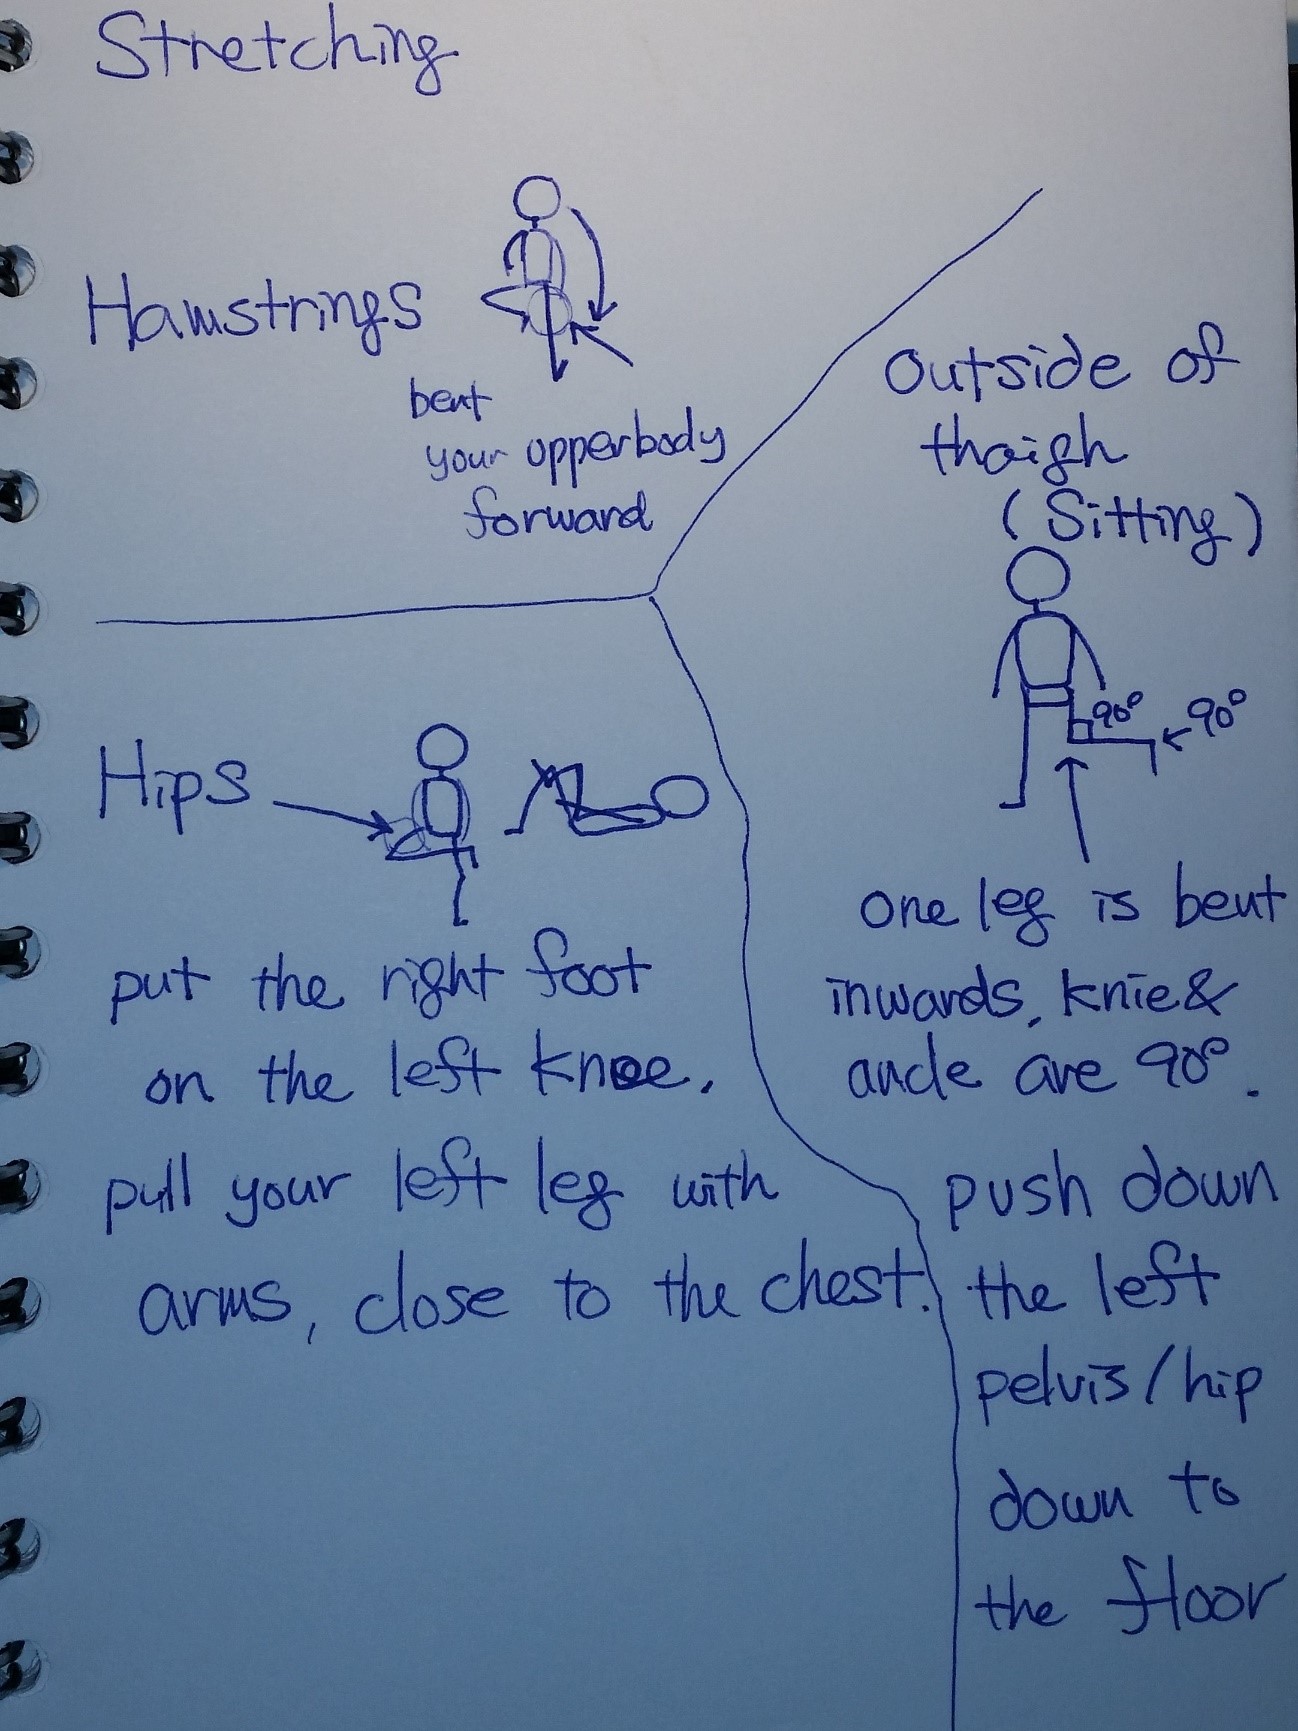 Stretching
Hamstrings
bent
your opperbody
forward
Outside of
thaigh
(Sitting)
90°
90°
one leg is bent
inwards, knie &
ancle are 90°.
push down
the left
pelvis/hip
down to
the floor
Hips
put the right foot
on the left knee.
pull your left leg with
arms, close to the chest.